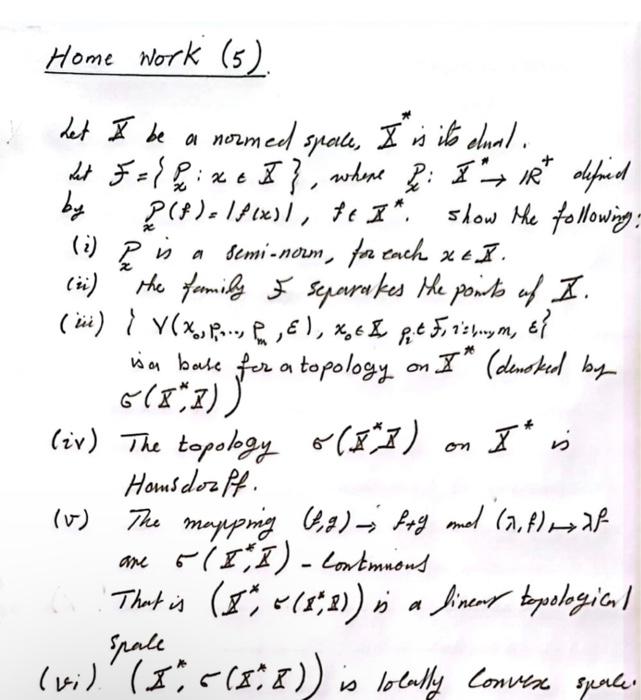 Home Work (5).
Let X be a normed space, X* is its dual.
Let F = { P_x : x ∈ X }, where P_x : X* → IR⁺ defined
by P_x(f) = |f(x)|, f ∈ X*. show the following:
(i) P_x is a semi-norm, for each x ∈ X.
(ii) the family F separates the points of X.
(iii) { V(x₀, P₁, ..., P_m, ε), x₀ ∈ X, P_i ∈ F, i=1,..,m, ε}
is a base for a topology on X* (denoted by
σ(X*,X))
(iv) The topology σ(X*,X) on X* is
Hausdorff.
(v) The mapping (f,g) → f+g and (λ,f) ↦ λf
are σ(X*,X) - continuous
That is (X*, σ(X*,X)) is a linear topological
space
(vi) (X*, σ(X*,X)) is locally convex space.